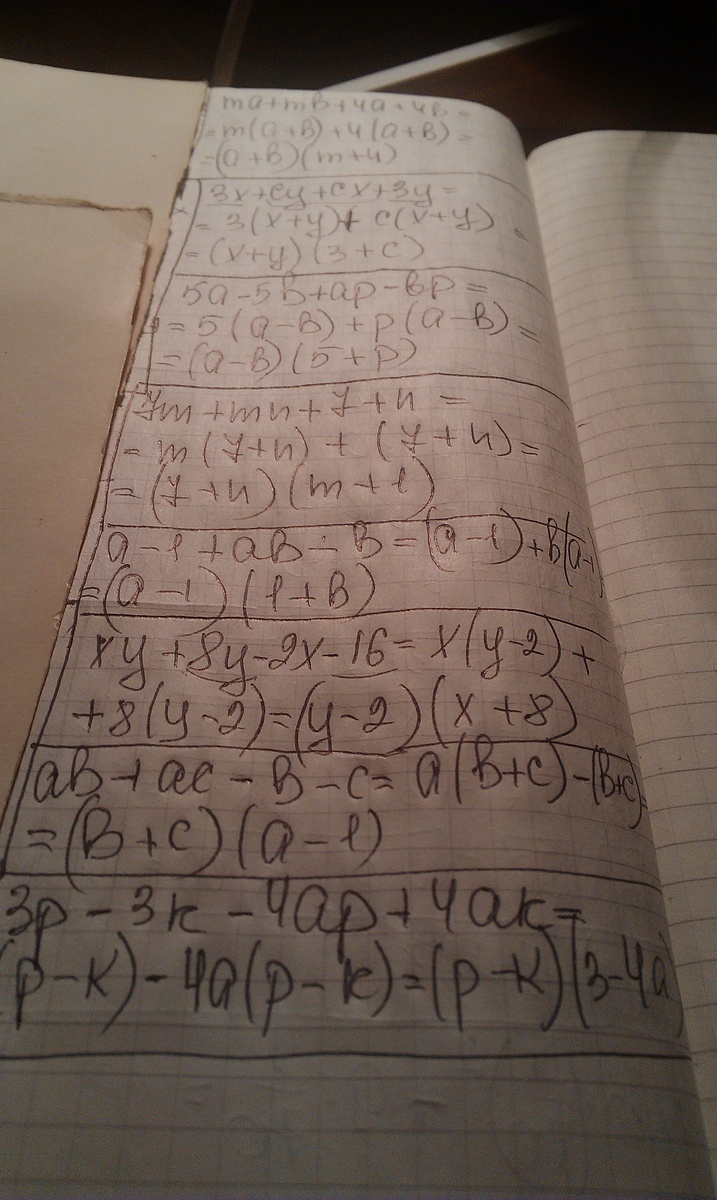 ma+mв+4a+4в=
=m(a+в)+4(a+в)=
=(a+в)(m+4)
3x+cy+cx+3y=
=3(x+y)+c(x+y)=
=(x+y)(3+c)
5a-5в+ap-вp=
=5(a-в)+p(a-в)=
=(a-в)(5+p)
7m+mn+7+n=
=m(7+n)+(7+n)=
=(7+n)(m+1)
a-1+aв-в=(a-1)+в(a-1)
=(a-1)(1+в)
xy+8y-2x-16=x(y-2)+
+8(y-2)=(y-2)(x+8)
aв+ac-в-c=a(в+c)-(в+c)=
=(в+c)(a-1)
3p-3k-4ap+4ak=
(p-k)-4a(p-k)=(p-k)(3-4a)